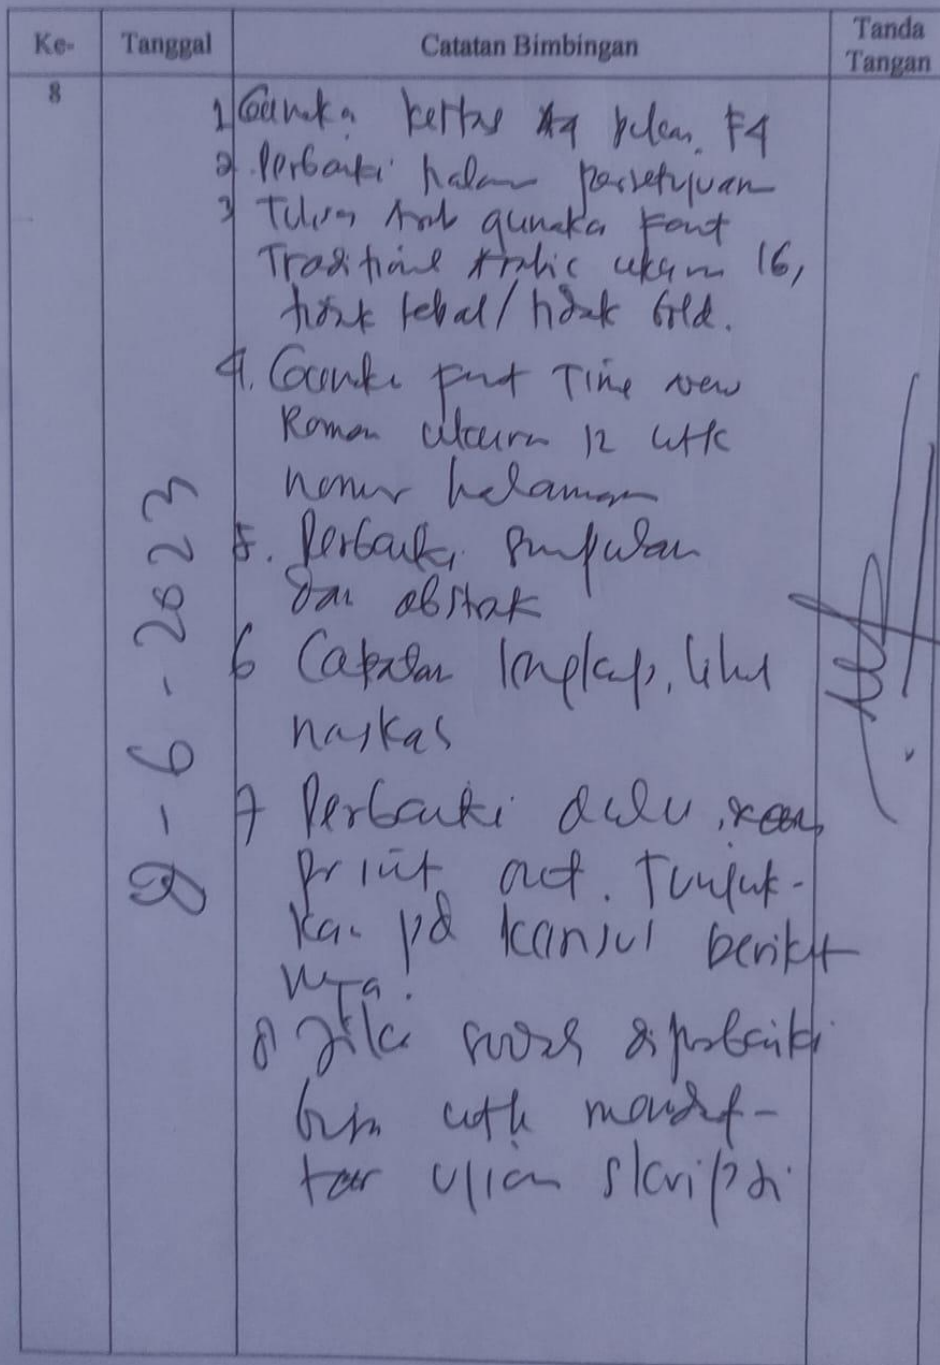 Ke-
Tanggal
Catatan Bimbingan
Tanda
Tangan
8
2-6-2023
1 Gunakan kertas A4 bukan F4
2. Perbaiki halaman persetujuan
3 Tulisan Arab gunakan Font
Traditional Arabic ukuran 16,
tidak tebal/tidak bold.
4. Gunakan font Time new
Roman ukuran 12 utk
nomor halaman
5. Perbaiki simpulan
dan abstrak
6 lengkap, lihat
naskas
7 Perbaiki dulu,
print out. Tunjuk-
kan pd konsul berikut
nya.
8 Jika sudah diperbaiki
bisa utk mendaf-
tar ujian skripsi